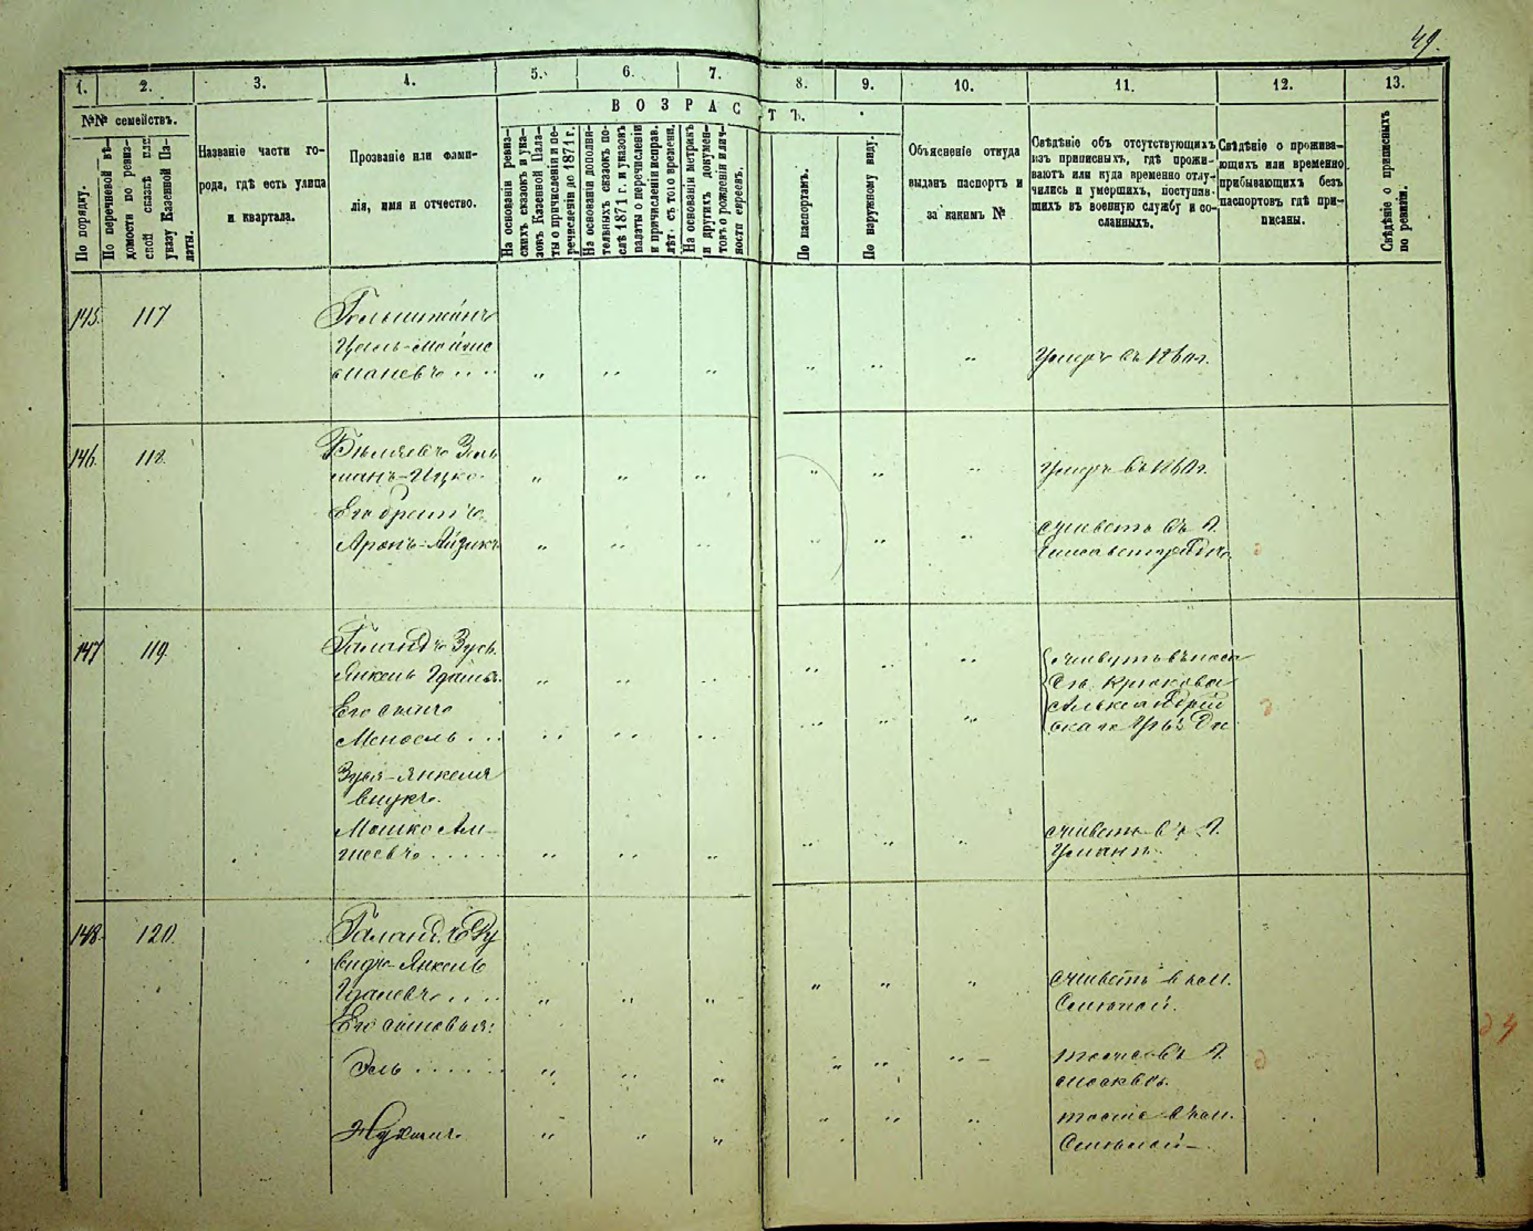 49.
1. 2. 3. 4. 5. 6. 7. 8. 9. 10. 11. 12. 13.
ВОЗРАСТЪ.
№№ семействъ.
По порядку.
По перечневой вѣ-
домости по ревиз-
ской сказкѣ или
указу Казенной Па-
латы.
Названіе части го-
рода, гдѣ есть улица
и квартала.
Прозваніе или фами-
лія, имя и отчество.
На основаніи ревиз-
скихъ сказокъ и ука-
зовъ Казенной Пала-
ты о причисленіи и пе-
речисленіи до 1871 г.
На основаніи дополни-
тельныхъ сказокъ по-
слѣ 1871 г. и указовъ
палаты о перечисленіи
и причисленіи исправ.
лѣт. съ того времени.
На основаніи метрикъ
и другихъ докумен-
товъ о рожденіи и лич-
ности евреевъ.
По паспортамъ.
По наружному виду.
Объясненіе откуда
выданъ паспортъ и
за какимъ №
Свѣдѣніе объ отсутствующихъ
изъ приписныхъ, гдѣ прожи-
ваютъ или куда временно отлу-
чились и умершихъ, поступив-
шихъ въ военную службу и со-
сланныхъ.
Свѣдѣніе о прожива-
ющихъ или временно
прибывающихъ безъ
паспортовъ гдѣ при-
писаны.
Свѣдѣніе о приписныхъ
по ревизіи.
145. 117
Гольштейнъ
маневъ . . . „ „ „ „ „ „ Умеръ въ г.
146. 118.
Зель
манъ-Ицко „ „ „ „ „ „ Умеръ въ г.
Его братъ
Аронъ-Айзикъ „ „ „ „ „ „ живетъ въ г.
Елисаветградѣ
147 119.
Галандъ Зусь
Янкель „ „ „ „ „ „ живутъ въ поса
дѣ Крюковѣ
Его сынъ
Александрій
„ „ „ „ „ „ ска
Зуся-Янкеля
внукъ.
Мошко
„ „ „ „ „ „ живетъ въ г.
Умани.
148. 120.
Галандъ Ду
видъ-Янкель
„ „ „ „ „ „ живетъ в кол.
Его сыновья:
Эль . . . . . „ „ „ „ „ „ тоже въ г.
Москвѣ.
Нухимъ „ „ „ „ „ „ тоже в кол.
д 4